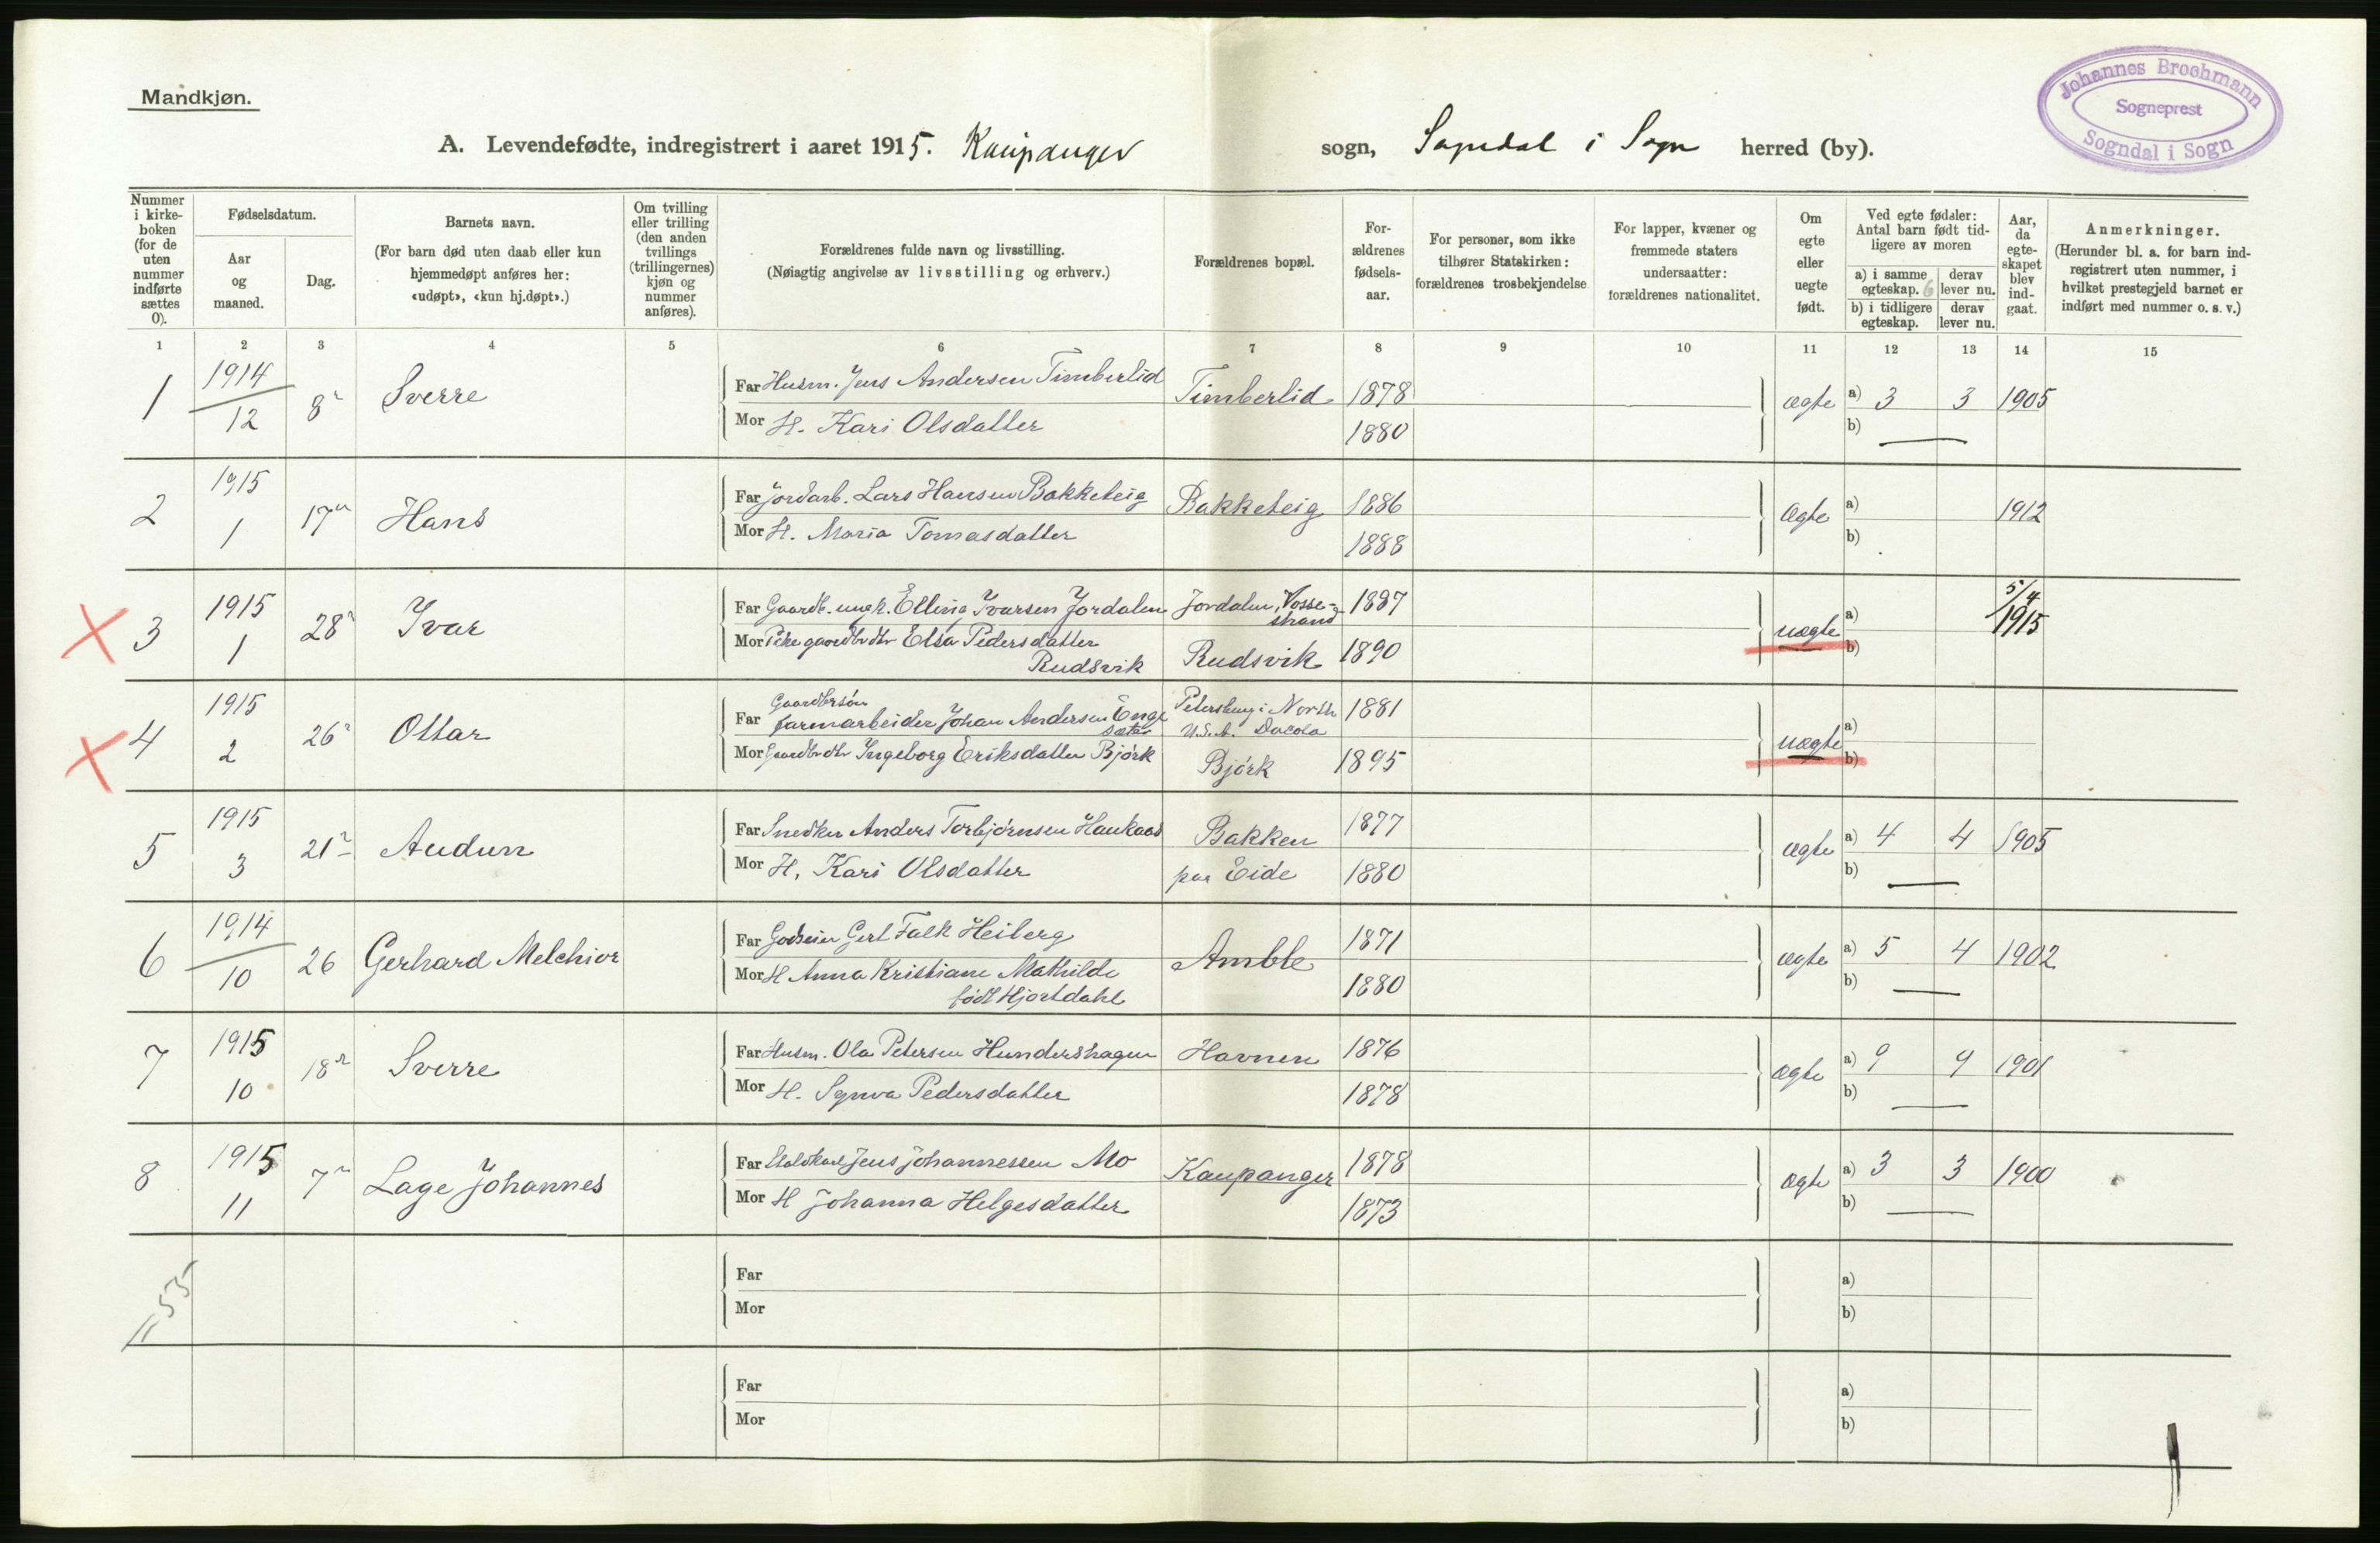 Mandkjøn.
Johannes Brochmann
Sogneprest
Sogndal i Sogn
A. Levendefødte, indregistrert i aaret 1915. Kaupanger sogn, Sogndal i Sogn herred (by).
Nummer i kirke-boken (for de uten nummer indførte sættes 0).
Fødselsdatum.
Aar og maaned.
Dag.
Barnets navn.
(For barn død uten daab eller kun hjemmedøpt anføres her: «udøpt», «kun hj.døpt».)
Om tvilling eller trilling (den anden tvillings (trillingernes) kjøn og nummer anføres).
Forældrenes fulde navn og livsstilling.
(Nøiagtig angivelse av livsstilling og erhverv.)
Forældrenes bopæl.
For-ældrenes fødsels-aar.
For personer, som ikke tilhører Statskirken: forældrenes trosbekjendelse
For lapper, kvæner og fremmede staters undersaatter: forældrenes nationalitet.
Om egte eller uegte født.
Ved egte fødsler: Antal barn født tid-ligere av moren
a) i samme egteskap. 6
derav lever nu.
b) i tidligere egteskap.
derav lever nu.
Aar, da egte-skapet blev ind-gaat.
Anmerkninger.
(Herunder bl. a. for barn ind-registrert uten nummer, i hvilket prestegjeld barnet er indført med nummer o. s. v.)
1 2 3 4 5 6 7 8 9 10 11 12 13 14 15
1 1914 12 8de Sverre
Far Husm. Jens Andersen Timberlid Timberlid 1878 ægte a) 3 3 1905
Mor H. Kari Olsdatter 1880 b)
2 1915 1 17 Hans
Far Jordarb. Lars Hansen Bakketeig Bakketeig 1886 ægte a) 1912
Mor H. Maria Tomasdatter 1888 b)
3 1915 1 28 Ivar
Far Gaardb. ungk. Elling Ivarsen Jordalen Jordalen, Vosse-strand 1887 uægte a) 5/4 1915
Mor Pike gaardbrdtr Elsa Pedersdatter Rudsvik Rudsvik 1890 b)
4 1915 2 26 Ottar
Far Gaardbrsøn farmarbeider Johan Andersen Enge sæter Petersburg i North Dacota U.S.A. 1881 uægte a)
Mor Gaardbrdtr Ingeborg Eriksdatter Bjørk Bjørk 1895 b)
5 1915 3 21 Audun
Far Snedker Anders Torbjørnsen Haukaas Bakken 1877 ægte a) 4 4 1905
Mor H. Kari Olsdatter paa Eide 1880 b)
6 1914 10 26 Gerhard Melchior
Far Godseier Gert Falk Heiberg Amble 1871 ægte a) 5 4 1902
Mor H Anna Kristiane Mathilde født Hjortdahl 1880 b)
7 1915 10 18 Sverre
Far Husm. Ola Petersen Hundershagen Havnen 1876 ægte a) 9 9 1901
Mor H. Synva Pedersdatter 1878 b)
8 1915 11 7 Lage Johannes
Far Staldkarl Jens Johannessen Mo Kaupanger 1878 ægte a) 3 3 1900
Mor H Johanna Helgesdatter 1873 b)
Far a)
Mor b)
Far a)
Mor b)